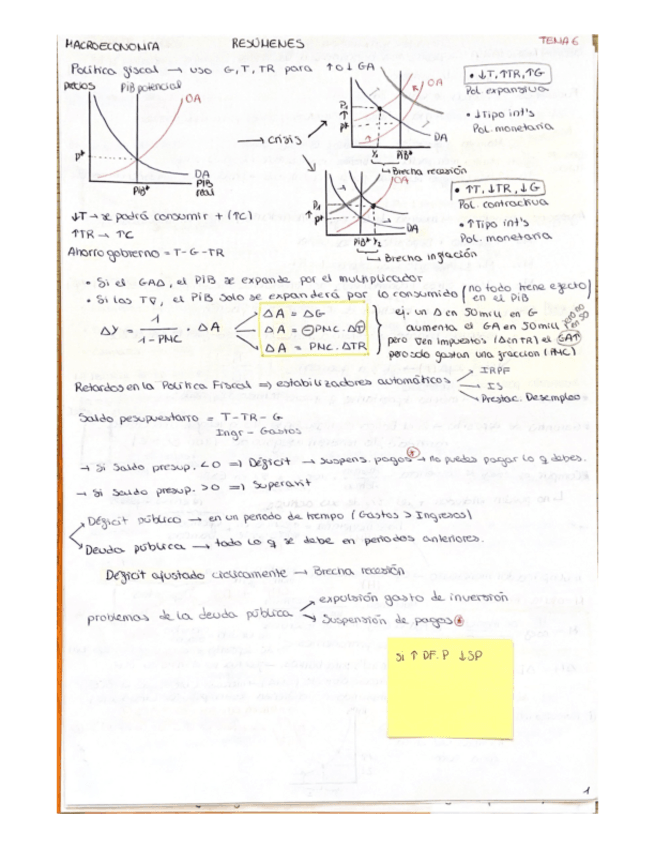 MACROECONOMÍA RESÚMENES TEMA 6
Política fiscal → uso G, T, TR para ↑ o ↓ GA
precios PIB potencial OA
P*
DA
PIB* PIB real
→ crisis
OA
P1
↑
P*
DA
Y1 PIB*
Brecha recesión
OA
P1
↑ P*
DA
PIB* Y2
Brecha inflación
• ↓T, ↑TR, ↑G
Pol. expansiva
• ↓Tipo int's
Pol. monetaria
• ↑T, ↓TR, ↓G
Pol. contractiva
• ↑Tipo int's
Pol. monetaria
↓T → se podrá consumir + (↑C)
↑TR → ↑C
Ahorro gobierno = T - G - TR
• Si el GAΔ, el PIB se expande por el multiplicador
• Si los T∇, el PIB solo se expanderá por lo consumido (no todo tiene efecto en el PIB)
ΔY = 1 / 1 - PMC · ΔA
ΔA = ΔG
ΔA = - PMC · ΔT
ΔA = PMC · ΔTR
ej. un Δ en 50 mill en G
aumenta el GA en 50 mill
pero en impuestos (Δ en TR) el GA↑
pero solo gastan una fracción (PMC)
Retardos en la Política Fiscal => estabilizadores automáticos
IRPF
IS
Prestac. Desempleo
Saldo pesupuestario = T - TR - G
Ingr - Gastos
→ Si Saldo presup. < 0 => Déficit → suspens. pagos → no puedes pagar lo q debes.
→ Si Saldo presup. > 0 => Superavit
Déficit público → en un periodo de tiempo (Gastos > Ingresos)
Deuda pública → todo lo q se debe en periodos anteriores.
Déficit ajustado ciclicamente → Brecha recesión
problemas de la deuda pública
expulsión gasto de inversión
Suspensión de pagos
Si ↑ DF. P ↓ SP
1